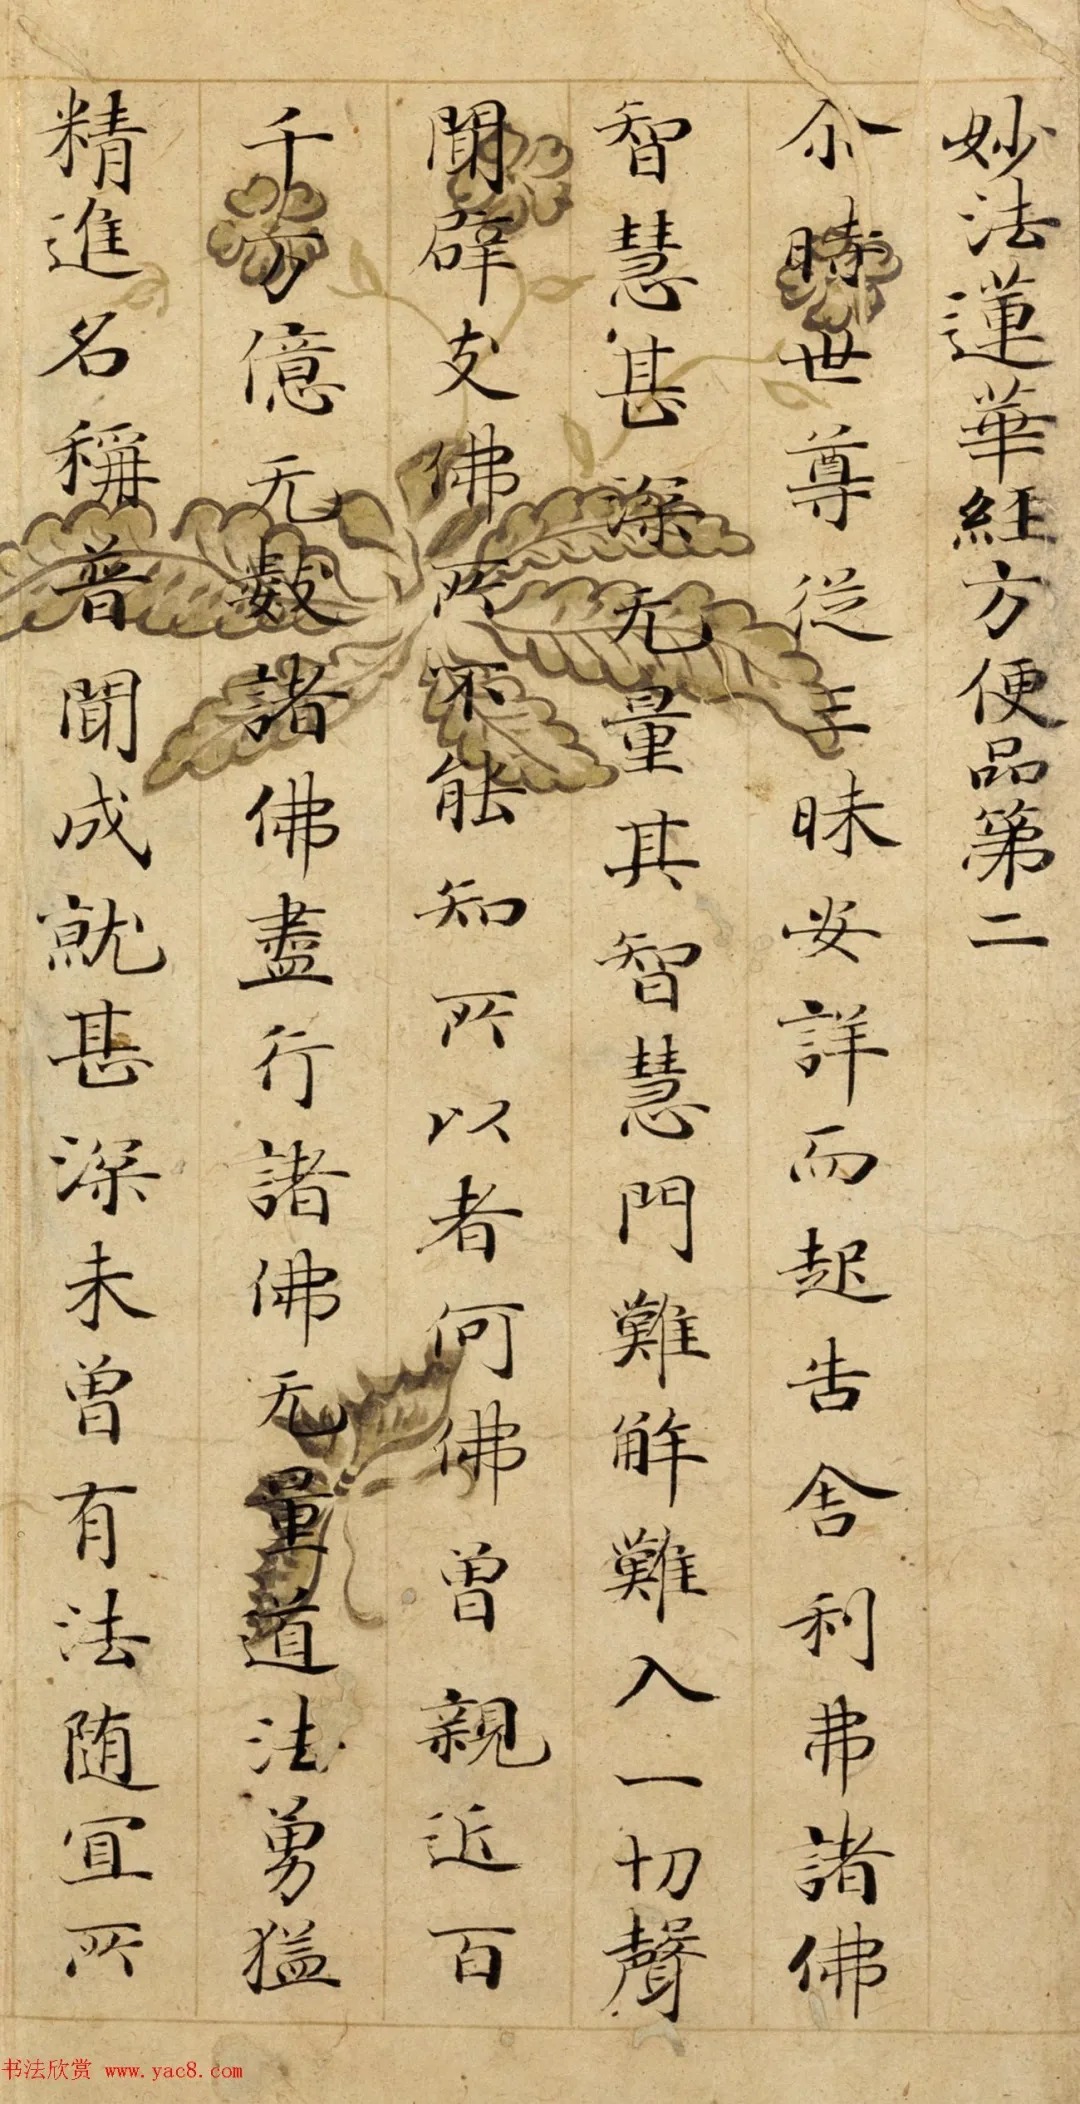 妙法蓮華經方便品第二
尒時世尊從三昧安詳而起告舍利弗諸佛
智慧甚深无量其智慧門難解難入一切聲
聞辟支佛所不能知所以者何佛曾親近百
千万億无數諸佛盡行諸佛无量道法勇猛
精進名稱普聞成就甚深未曾有法随宜所
书法欣赏 www.yac8.com